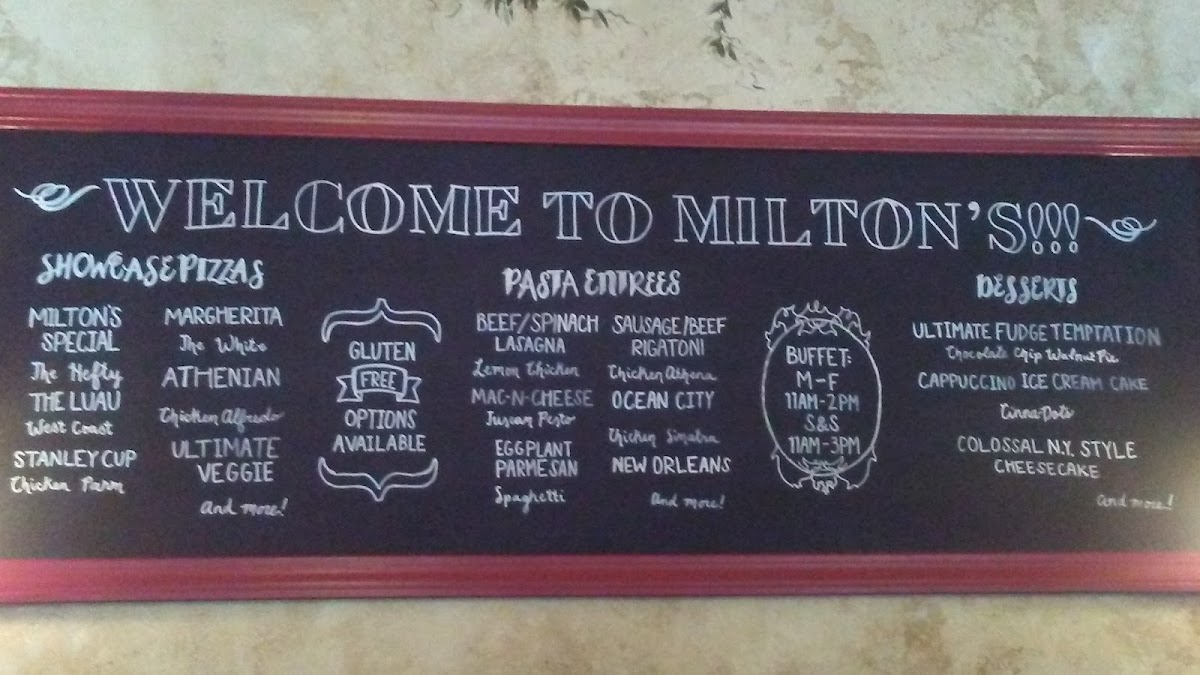 WELCOME TO MILTON'S!!!
SHOWCASE PIZZAS
MILTON'S
SPECIAL
The Hefty
THE LUAU
West Coast
STANLEY CUP
Chicken Parm
MARGHERITA
The White
ATHENIAN
Chicken Alfredo
ULTIMATE
VEGGIE
and more!
GLUTEN
FREE
OPTIONS
AVAILABLE
PASTA ENTREES
BEEF/SPINACH
LASAGNA
Lemon Chicken
MAC-N-CHEESE
Tuscan Pesto
EGGPLANT
PARMESAN
Spaghetti
SAUSAGE/BEEF
RIGATONI
Chicken Athena
OCEAN CITY
Chicken Sinatra
NEW ORLEANS
and more!
BUFFET:
M-F
11AM-2PM
S&S
11AM-3PM
DESSERTS
ULTIMATE FUDGE TEMPTATION
Chocolate Chip Walnut Pie
CAPPUCCINO ICE CREAM CAKE
Cinna-Dots
COLOSSAL N.Y. STYLE
CHEESECAKE
and more!